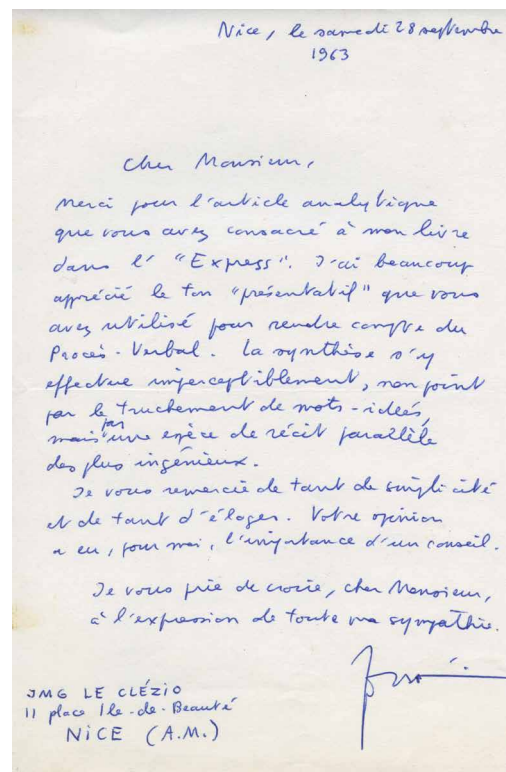 Nice, le samedi 28 septembre
1963
Cher Monsieur,
Merci pour l'article analytique
que vous avez consacré à mon livre
dans l' "Express". J'ai beaucoup
apprécié le ton "présentatif" que vous
avez utilisé pour rendre compte du
Procès-Verbal. La synthèse s'y
effectue imperceptiblement, non point
par le truchement de mots-idées,
mais par une espèce de récit parallèle
des plus ingénieux.
Je vous remercie de tant de simplicité
et de tant d'éloges. Votre opinion
a eu, pour moi, l'importance d'un conseil.
Je vous prie de croire, cher Monsieur,
à l'expression de toute ma sympathie.
JMG LE CLÉZIO
11 place Ile-de-Beauté
NICE (A.M.)